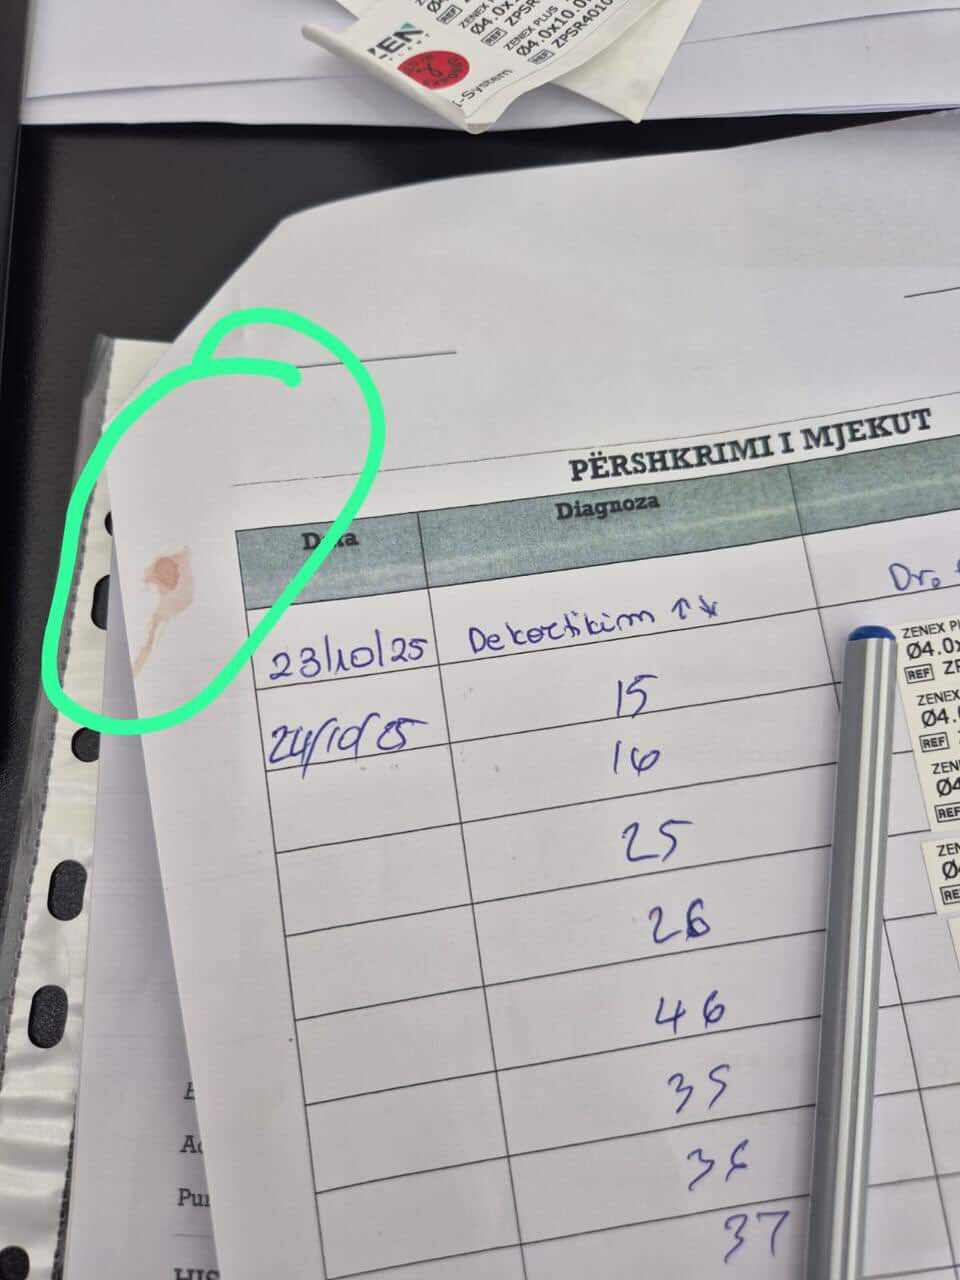 ZEN
ZENEX PLUS
Ø4.0x10.0
REF ZPSR4010
-System
PËRSHKRIMI I MJEKUT
Data Diagnoza
23/10/25 Dekortikim ↑↓ Dr.
24/10/25 15
16
25
26
46
35
36
37
ZENEX PL
Ø4.0x
REF ZP
ZENEX
Ø4.
REF
ZEN
Ø4
REF
ZEN
Ø4
RE
Pu
HIS